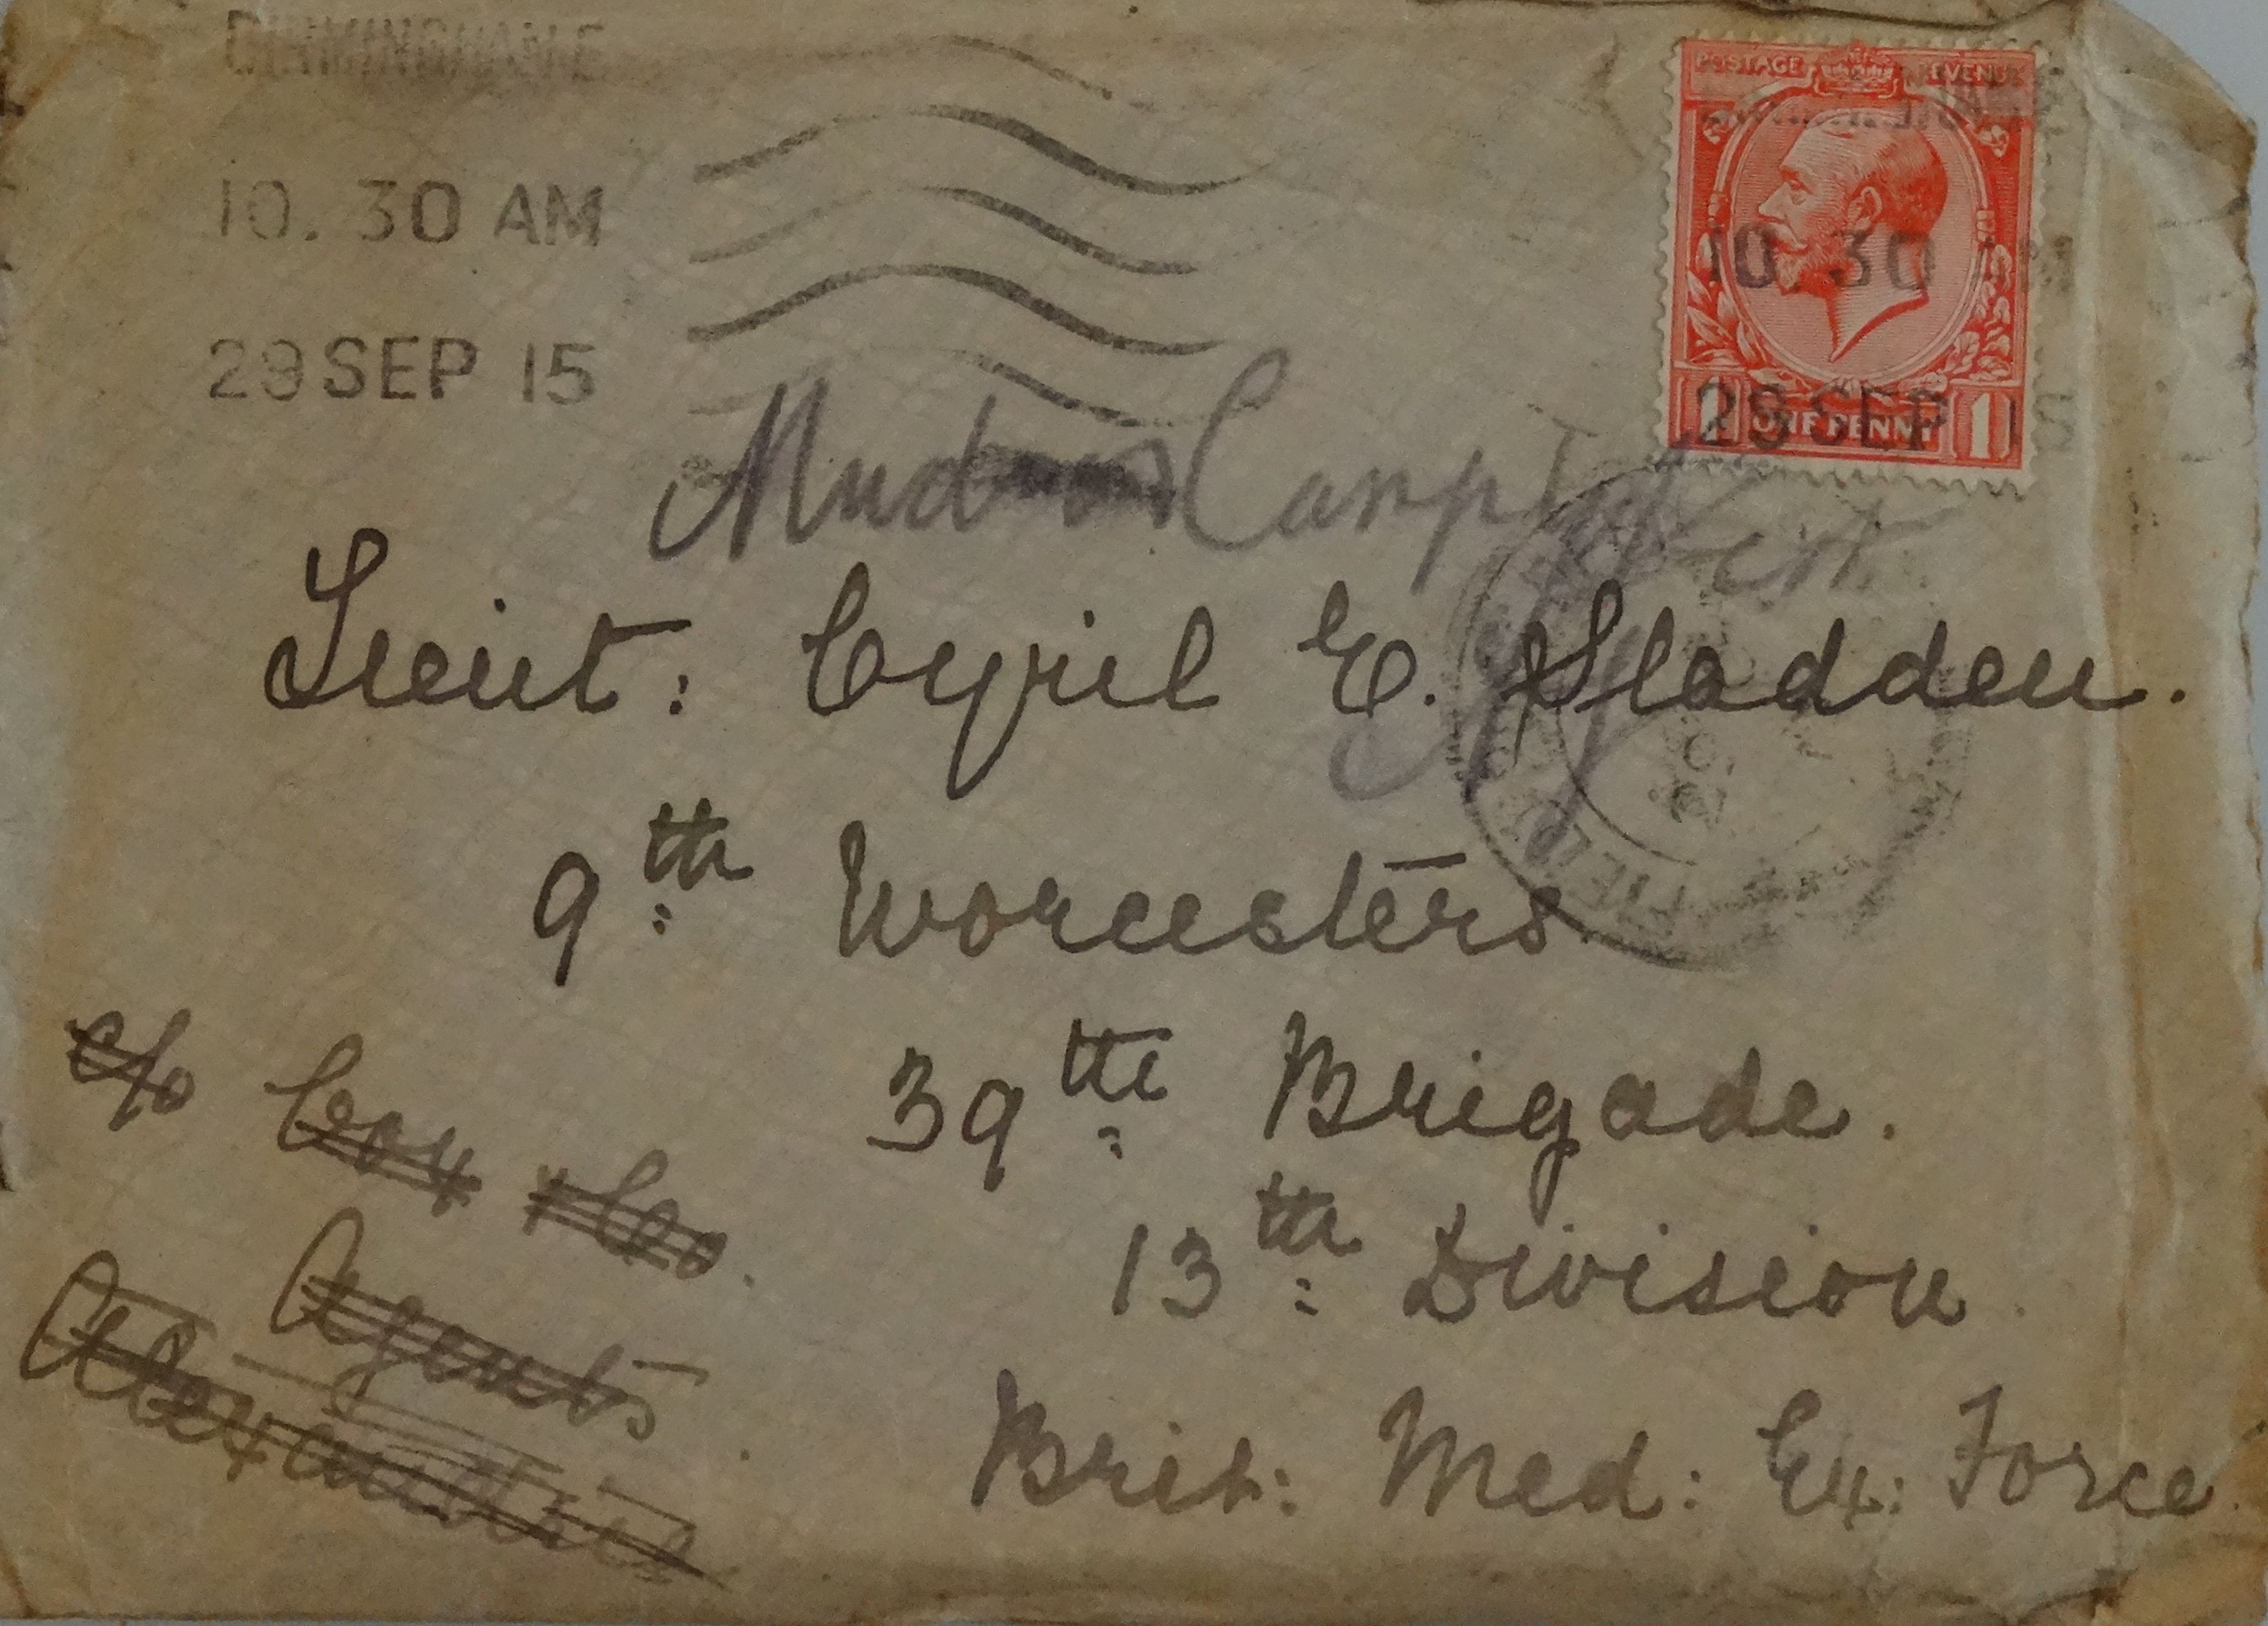 BIRMINGHAM
10. 30 AM
29 SEP 15
POSTAGE REVENUE
10. 30 AM
29 SEP 15
1 ONE PENNY 1
Mudros Camp
Lieut: Cyril E. Sladden.
9th Worcesters
FIELD
39th Brigade.
13th Division.
Brit: Med: Ex: Force.
c/o Cox & Co.
Agents
Alexandria